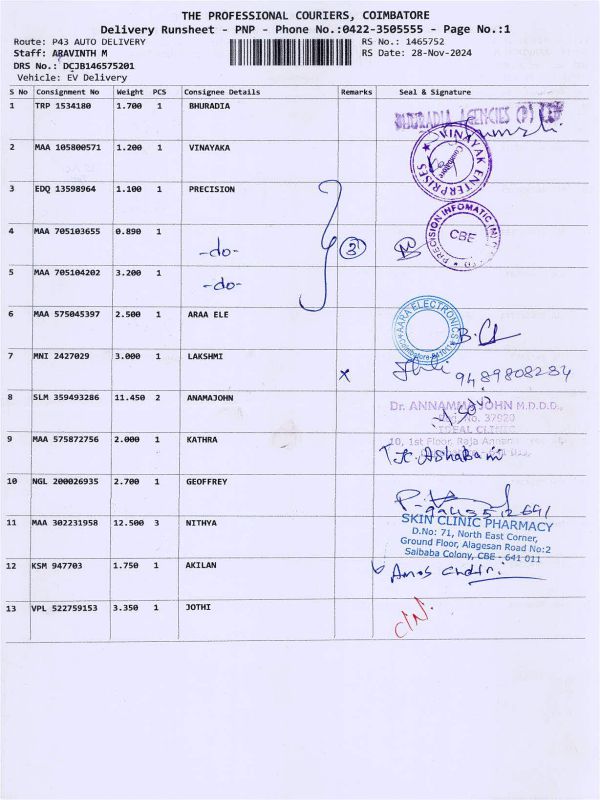 THE PROFESSIONAL COURIERS, COIMBATORE
Delivery Runsheet - PNP - Phone No.:0422-3505555 - Page No.:1
Route: P43 AUTO DELIVERY RS No.: 1465752
Staff: ARAVINTH M RS Date: 28-Nov-2024
DRS No.: DCJB146575201
Vehicle: EV Delivery
S No Consignment No Weight PCS Consignee Details Remarks Seal & Signature
1 TRP 1534180 1.700 1 BHURADIA BHURADIA AGENCIES (P) LTD
2 MAA 105800571 1.200 1 VINAYAKA VINAYAK ENTERPRISES Coimbatore
3 EDQ 13598964 1.100 1 PRECISION PRECISION INFOMATIC (M) CBE
4 MAA 705103655 0.890 1 -do- 3
5 MAA 705104202 3.200 1 -do-
6 MAA 575045397 2.500 1 ARAA ELE AARA ELECTRONICS
7 MNI 2427029 3.000 1 LAKSHMI x 9489808234
8 SLM 359493286 11.450 2 ANAMAJOHN Dr. ANNAMMA JOHN M.D.D.D.,
Reg. No. 37920
IDEAL CLINIC
10, 1st Floor, Raja
9 MAA 575872756 2.000 1 KATHRA
10 NGL 200026935 2.700 1 GEOFFREY
11 MAA 302231958 12.500 3 NITHYA SKIN CLINIC PHARMACY
D.No: 71, North East Corner,
Ground Floor, Alagesan Road No:2
Saibaba Colony, CBE - 641 011
12 KSM 947703 1.750 1 AKILAN
13 VPL 522759153 3.350 1 JOTHI